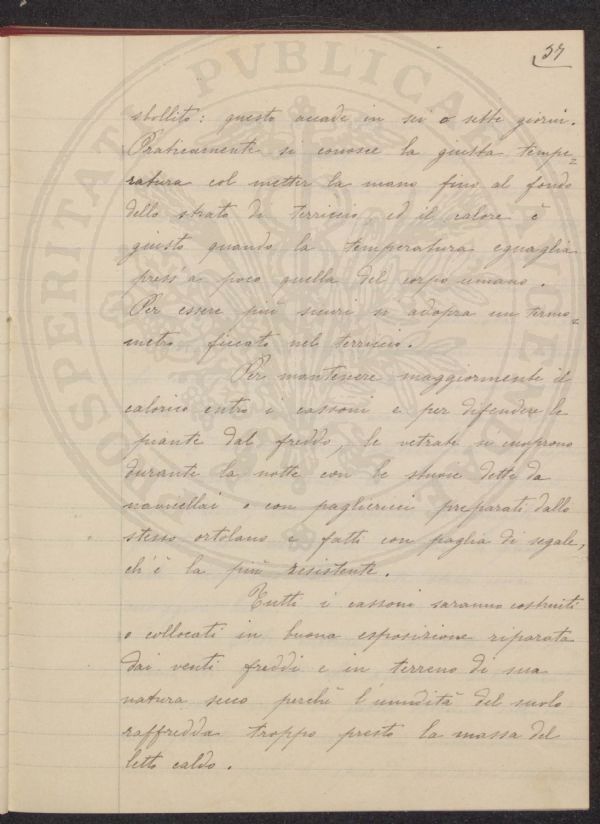 37
sbollito: questo accade in sei o sette giorni.
Praticamente si conosce la giusta tempe=
ratura col metter la mano fino al fondo
dello strato di terriccio, ed il calore è
giusto quando la temperatura eguaglia
press'a poco quella del corpo umano.
Per essere più sicuri si adopra un termo=
metro ficcato nel terriccio.
Per mantenere maggiormente il
calorico entro i cassoni e per difendere le
piante dal freddo, le vetrate si cuoprono
durante la notte con le stuoie dette da
navicellai o con pagliericci preparati dallo
stesso ortolano e fatti con paglia di segale,
ch'è la più resistente.
Tutti i cassoni saranno costruiti
o collocati in buona esposizione riparata
dai venti freddi e in terreno di sua
natura secco perchè l'umidità del suolo
raffredda troppo presto la massa del
letto caldo.
PROSPERITATI PVBLICAE AVGENDAE